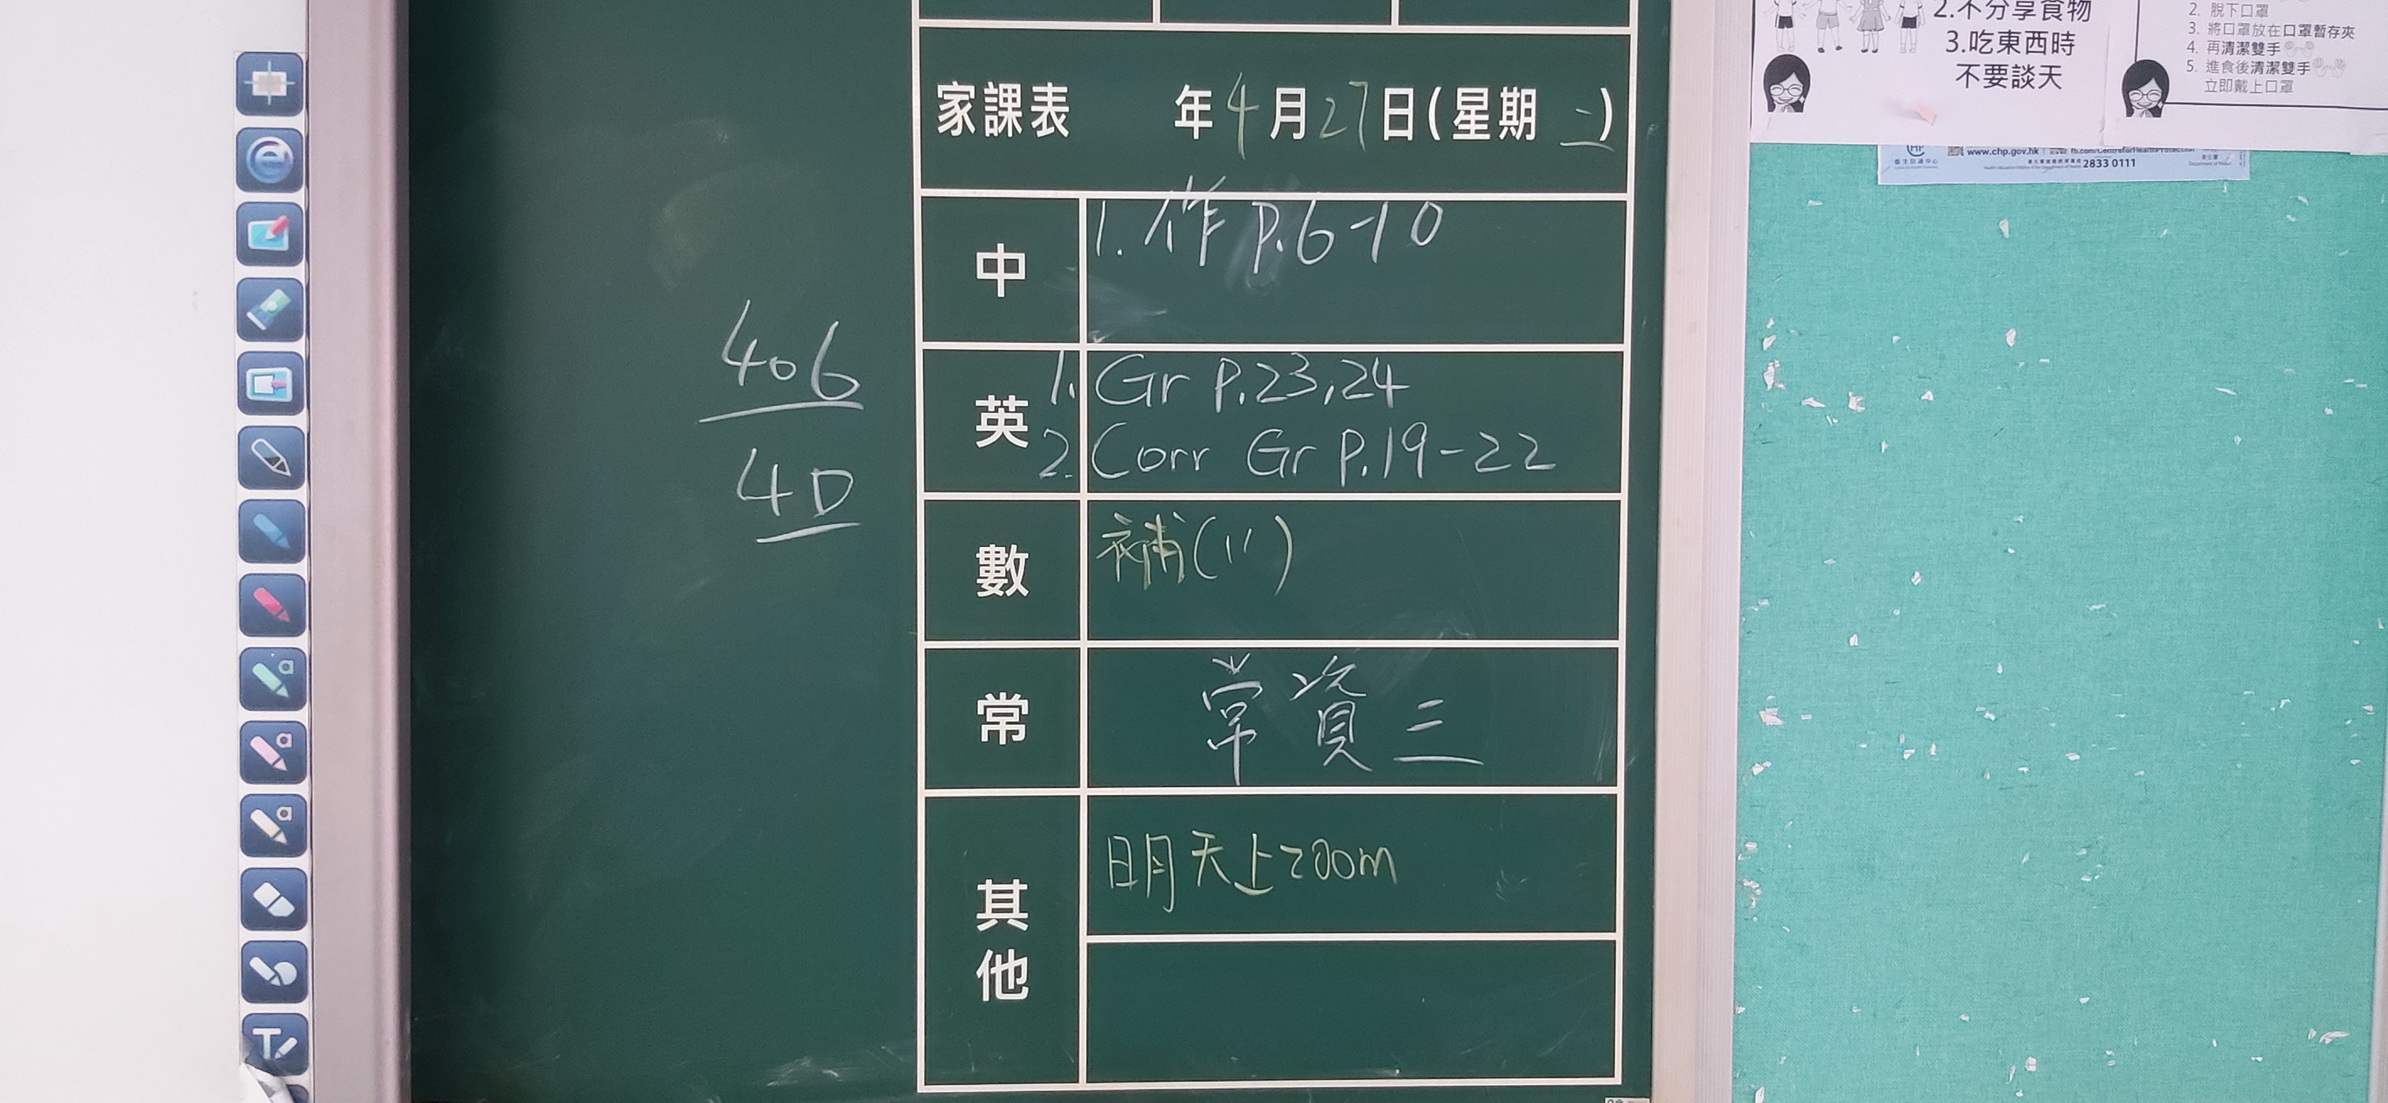 家課表 年4月27日(星期二)
中
1. 作 P.6-10
英
1. Gr P.23,24
2. Corr Gr P.19-22
數
補(11)
常
常資三
其他
明天上zoom
406
4D
2.不分享食物
3.吃東西時
不要談天
2. 脫下口罩
3. 將口罩放在口罩暫存夾
4. 再清潔雙手
5. 進食後清潔雙手
立即戴上口罩
www.chp.gov.hk
2833 0111
T